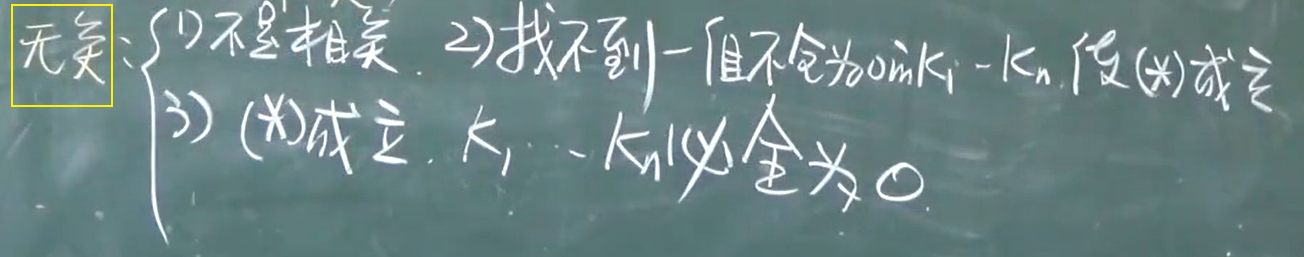 无关：{1) 不是相关. 2) 找不到一组不全为0的k₁-kₙ, 使(*)成立
3) (*)成立. k₁...kₙ必全为0.